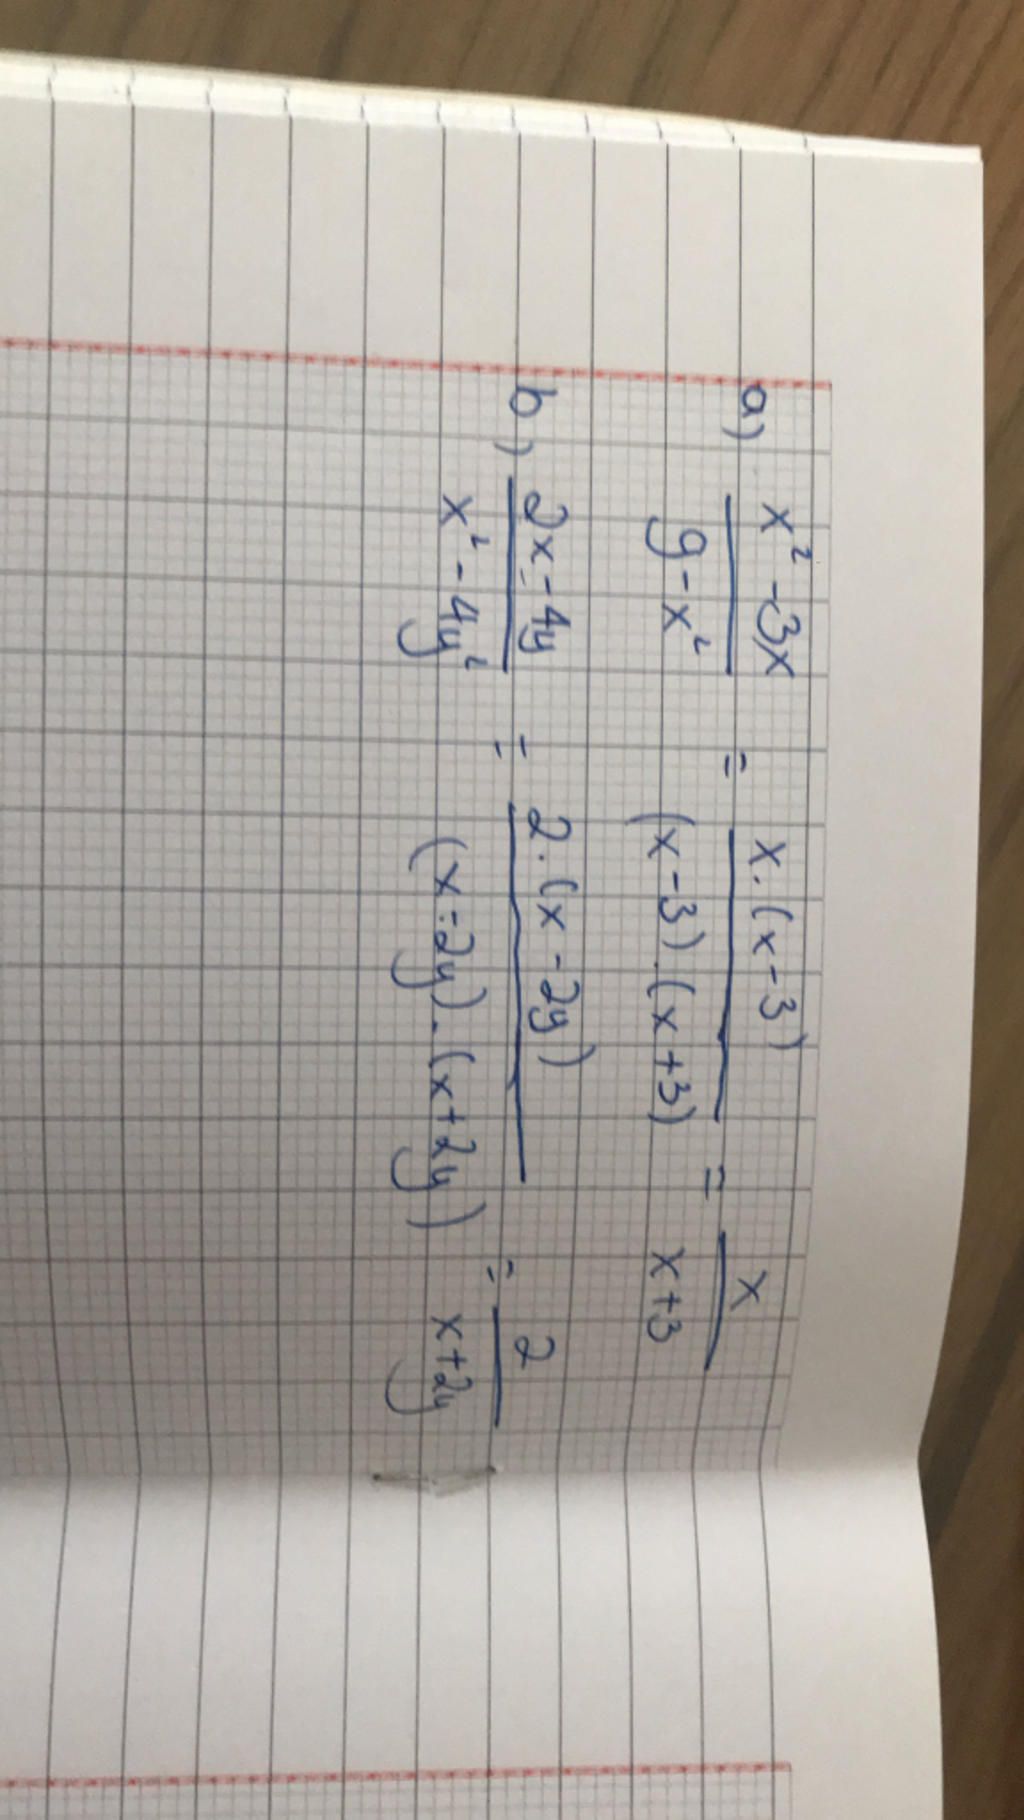 a) x² - 3x / 9 - x² = x . (x - 3) / (x - 3) . (x + 3) = x / x + 3
b) 2x - 4y / x² - 4y² = 2 . (x - 2y) / (x - 2y) . (x + 2y) = 2 / x + 2y